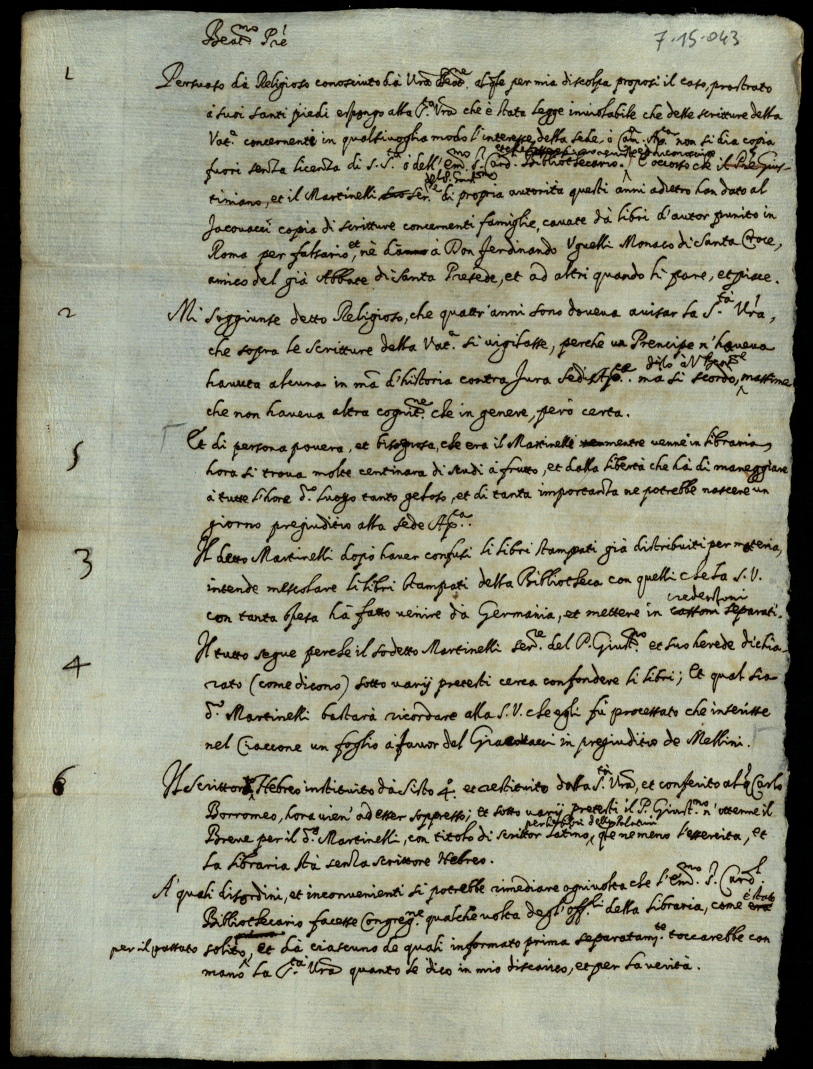 Beat.mo Pre
7-15-043
1 Persuaso dà Religioso conosciuto dà Vra Beat.ne al qle per mia discolpa proposi il caso, prostrato
à suoi santi piedi espongo alla S.tà Vra che è stata legge inviolabile che delle scritture della
Vat.a concernenti in qualsivoglia modo l'interesse della sede, ò Cam. Ap.ca non si dia copia
fuori senza licenza di S. S.tà ò dell' Em.mo S. Card. Bibliothecario. Occorso che il Pre Gius-
tiniano, et il Martinelli ser.re del P. Giust.no di propria autorità questi anni adietro han dato al
Jacovacci copia di scritture concernenti famiglie, cavate dà libri d'autor punito in
Roma per falsario, et nè à Don Ferdinando Vghelli Monaco di Santa Croce,
amico del già Abbate di Santa Presede, et ad altri quando li pare, et piace.
2 Mi soggiunse detto Religioso, che quattr'anni sono doveva avisar la S.tà Vra,
che sopra le scritture della Vat.a si vigilasse, perche un Prencipe n'haveva
havuta alcuna in ma d'historia contra Jura Sedis Ap.cae ma si scordò dirlo à V. Beat.ne, massime
che non haveva altra cognit.ne che in genere, però certa.
5 Et di persona povera, et bisognosa, che era il Martinelli mentre venne in libraria,
hora si trova molte centinara di scudi à frutto, et dalla libertà che hà di maneggiare
à tutte l'hore d.o luogo tanto geloso, et di tanta importanza ne potrebbe nascere un
giorno pregiuditio alla sede Ap.ca.
3 Il detto Martinelli dopò haver confusi li libri stampati già distribuiti per materia,
intende mescolare li libri stampati della Bibliotheca con quelli che la S. V.
con tanta spesa hà fatto venire dà Germania, et mettere in credenzoni separati.
4 Il tutto segue perche il sodetto Martinelli ser.re del P. Giust.no et suo herede dichia-
rato (come dicono) sotto varij pretesti cerca confondere li libri; Et qual sia
d.o Martinelli bastarà ricordare alla S. V. che egli fù processato che inserisse
nel Ciaccone un foglio à favor del in pregiuditio de Mellini.
6 Il scrittor Hebreo instituito dà Sisto 4.o et restituito dalla S.tà Vra, et conferito al q Carlo
Borromeo, hora vien' ad esser soppresso; Et sotto varij pretesti il P. Giust.no n'ottenne il
Breve per il d.o Martinelli, con titolo di scrittor Latino, per li libri della Palatina che nemeno l'essercita, et
la libraria stà senza scrittore Hebreo.
A' quali disordini, et inconvenienti si potrebbe rimediare ogni volta che l'Em.mo S. Card.l
Bibliothecario facesse Congreg.ne qualche volta degl'off.li della libraria, come è stato
per il passato solito, et dà ciascuno de quali informato prima separatam.te toccarebbe con
mano la S.tà Vra quanto le dico in mio discarico, et per la verità.